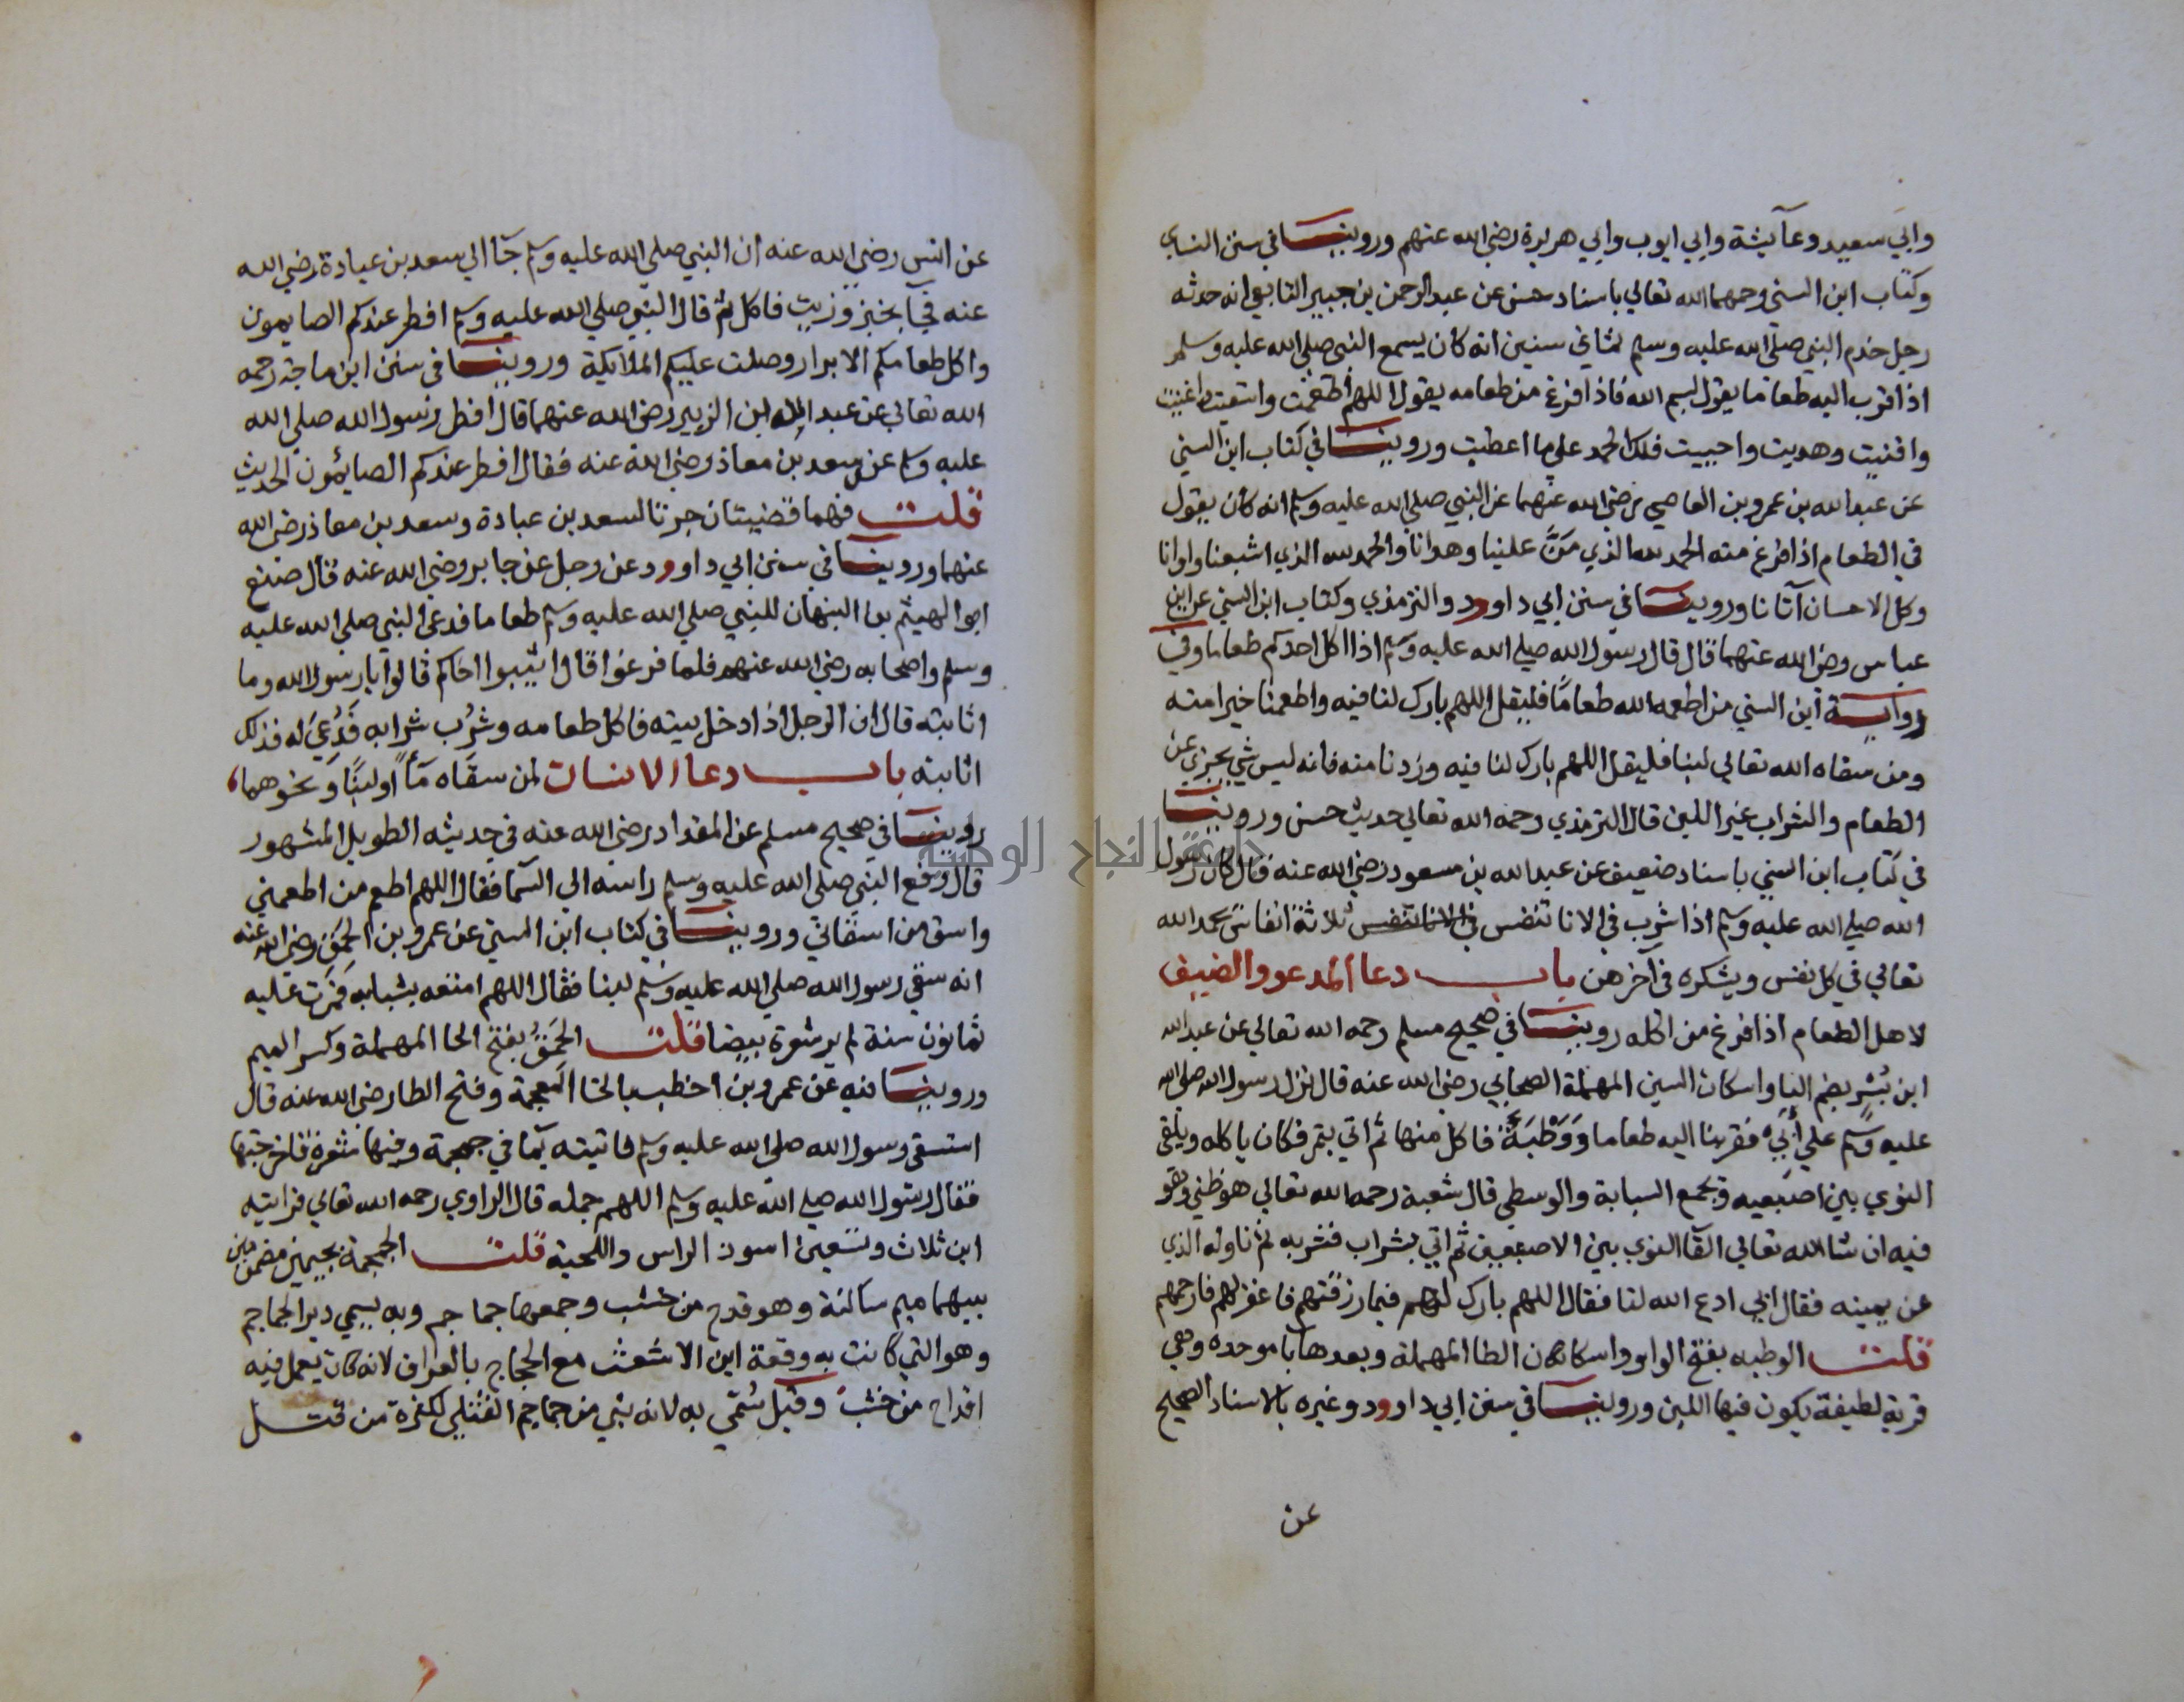 وابي سعيد وعآيشة وابي ايوب وابي هريرة رضي الله عنهم وروينا في سنن النساي
وكتاب ابن السني رحمهما الله تعالي باسناد حسن عن عبد الرحمن بن جبير التابعي انه حدثه
رجل خدم النبي صلي الله عليه وسلم ثماني سنين انه كان يسمع النبي صلي الله عليه وسلم
اذا قرب اليه طعاما يقول بسم الله فاذا فرغ من طعامه يقول اللهم اطعمت واسقيت واغنيت
واقنيت وهديت واحييت فلك الحمد علي ما اعطيت وروينا في كتاب ابن السني
عن عبد الله بن عمرو بن العاصي رضي الله عنهما عن النبي صلي الله عليه وسلم انه كان يقول
في الطعام اذا فرغ منه الحمد لله الذي مَنَّ علينا وهدانا والحمد لله الذي اشبعنا واروانا
وكل الاحسان آتانا وروينا في سنن ابي داوود والترمذي وكتاب ابن السني عن ابن
عباس رضي الله عنهما قال قال رسول الله صلي الله عليه وسلم اذا اكل احدكم طعاما وفي
رواية ابن السني من اطعمه الله طعامًا فليقل اللهم بارك لنا فيه واطعمنا خيرا منه
ومن سقاه الله تعالي لبنا فليقل اللهم بارك لنا فيه وزدنا منه فانه ليس شي يجزي عن
الطعام والشراب غير اللبن قال الترمذي رحمه الله تعالي حديث حسن وروينا
في كتاب ابن السني باسناد ضعيف عن عبد الله بن مسعود رضي الله عنه قال كان رسول
الله صلي الله عليه وسلم اذا شرب في الانا تنفس في الانا تنفس ثلاثة انفاس يحمد الله
تعالي في كل نفس ويشكره في آخرهن باب دعا المدعو والضيف
لاهل الطعام اذا فرغ من اكله روينا في صحيح مسلم رحمه الله تعالي عن عبد الله
ابن بُسْرٍ بضم البا واسكان السين المهملة الصحابي رضي الله عنه قال نزل رسول الله صلي الله
عليه وسلم علي أَبِي فقربنا اليه طعاما وَوَطْبَةً فاكل منها ثم اتي بتمر فكان ياكله ويلقي
النوي بين اصبعيه ويجمع السبابة والوسطي قال شعبة رحمه الله تعالي هو ظني وهو
فيه ان شا الله تعالي القآ النوي بين الاصبعين ثم اتي بشراب فشربه ثم ناوله الذي
عن يمينه فقال ابي ادع الله لنا فقال اللهم بارك لهم فيما رزقتهم فاغفر لهم فارحمهم
قلت الوطبه بفتح الواو واسكان الطا المهملة وبعدها با موحده وهي
قربة لطيفة يكون فيها اللبن وروينا في سنن ابي داوود وغيره بالاسناد الصحيح
عن
عن انس رضي الله عنه ان النبي صلي الله عليه وسلم جآ الي سعد بن عبادة رضي الله
عنه فجآ بخبز وزيت فاكل ثم قال النبي صلي الله عليه وسلم افطر عندكم الصايمون
واكل طعامكم الابرار وصلت عليكم الملايكة وروينا في سنن ابن ماجة رحمه
الله تعالي عن عبد الله ابن الزبير رضي الله عنهما قال افطر رسول الله صلي الله
عليه وسلم عند سعد بن معاذ رضي الله عنه فقال افطر عندكم الصايمون الحديث
قلت فهما قضيتان جرتا لسعد بن عبادة وسعد بن معاذ رضي الله
عنهما وروينا في سنن ابي داوود عن رجل عن جابر رضي الله عنه قال صنع
ابو الهيثم بن التيهان للنبي صلي الله عليه وسلم طعاما فدعي النبي صلي الله عليه
وسلم واصحابه رضي الله عنهم فلما فرغوا قال اثيبوا اخاكم قالوا يا رسول الله وما
اثابته قال ان الرجل اذا دخل بيته فاكل طعامه وشُرِب شرابه فَدُعِيَ له فذلك
اثابته باب دعا الانسان لمن سقاه مآأ او لبنًا ونحوهما
روينا في صحيح مسلم عن المقداد رضي الله عنه في حديثه الطويل المشهور
قال رفع النبي صلي الله عليه وسلم راسه الي السما فقال اللهم اطعم من اطعمني
واسق من اسقاني وروينا في كتاب ابن السني عن عمرو بن الحمق رضي الله عنه
انه سقي رسول الله صلي الله عليه وسلم لبنا فقال اللهم امتعه بشبابه فمرت عليه
ثمانون سنة لم ير شعرة بيضا قلت الحَمِقُ بفتح الحا المهملة وكسر الميم
وروينا فيه عن عمرو بن اخطب بالخا المعجمة وفتح الطا رضي الله عنه قال
استسقي رسول الله صلي الله عليه وسلم فاتيته بمآ في جمجمة وفيها شعرة فاخرجتها
فقال رسول الله صلي الله عليه وسلم اللهم جمله قال الراوي رحمه الله تعالي فرايته
ابن ثلاث وتسعين اسود الراس واللحية قلت الجمجمة بجيمين مضمومتين
بينهما ميم ساكنة وهو قدح من خشب وجمعها جماجم وبه يسمي دير الجماجم
وهو التي كانت به وقعة ابن الاشعث مع الحجاج بالعراق لانه كان يعمل فيه
اقداح من خشب وقيل سُمّي به لانه بني من جماجم القتلي لكثرة من قتل
جامعة النجاح الوطنية